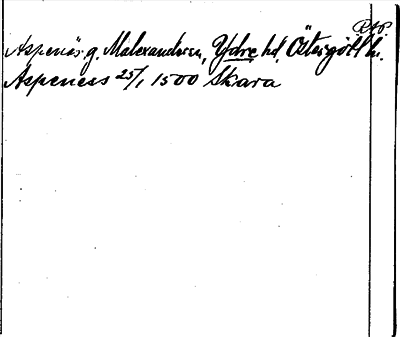 Aspenäs, g. Malexanders sn, Ydre hd, Östergötl.
Aspeness 25/1 1500 Skara